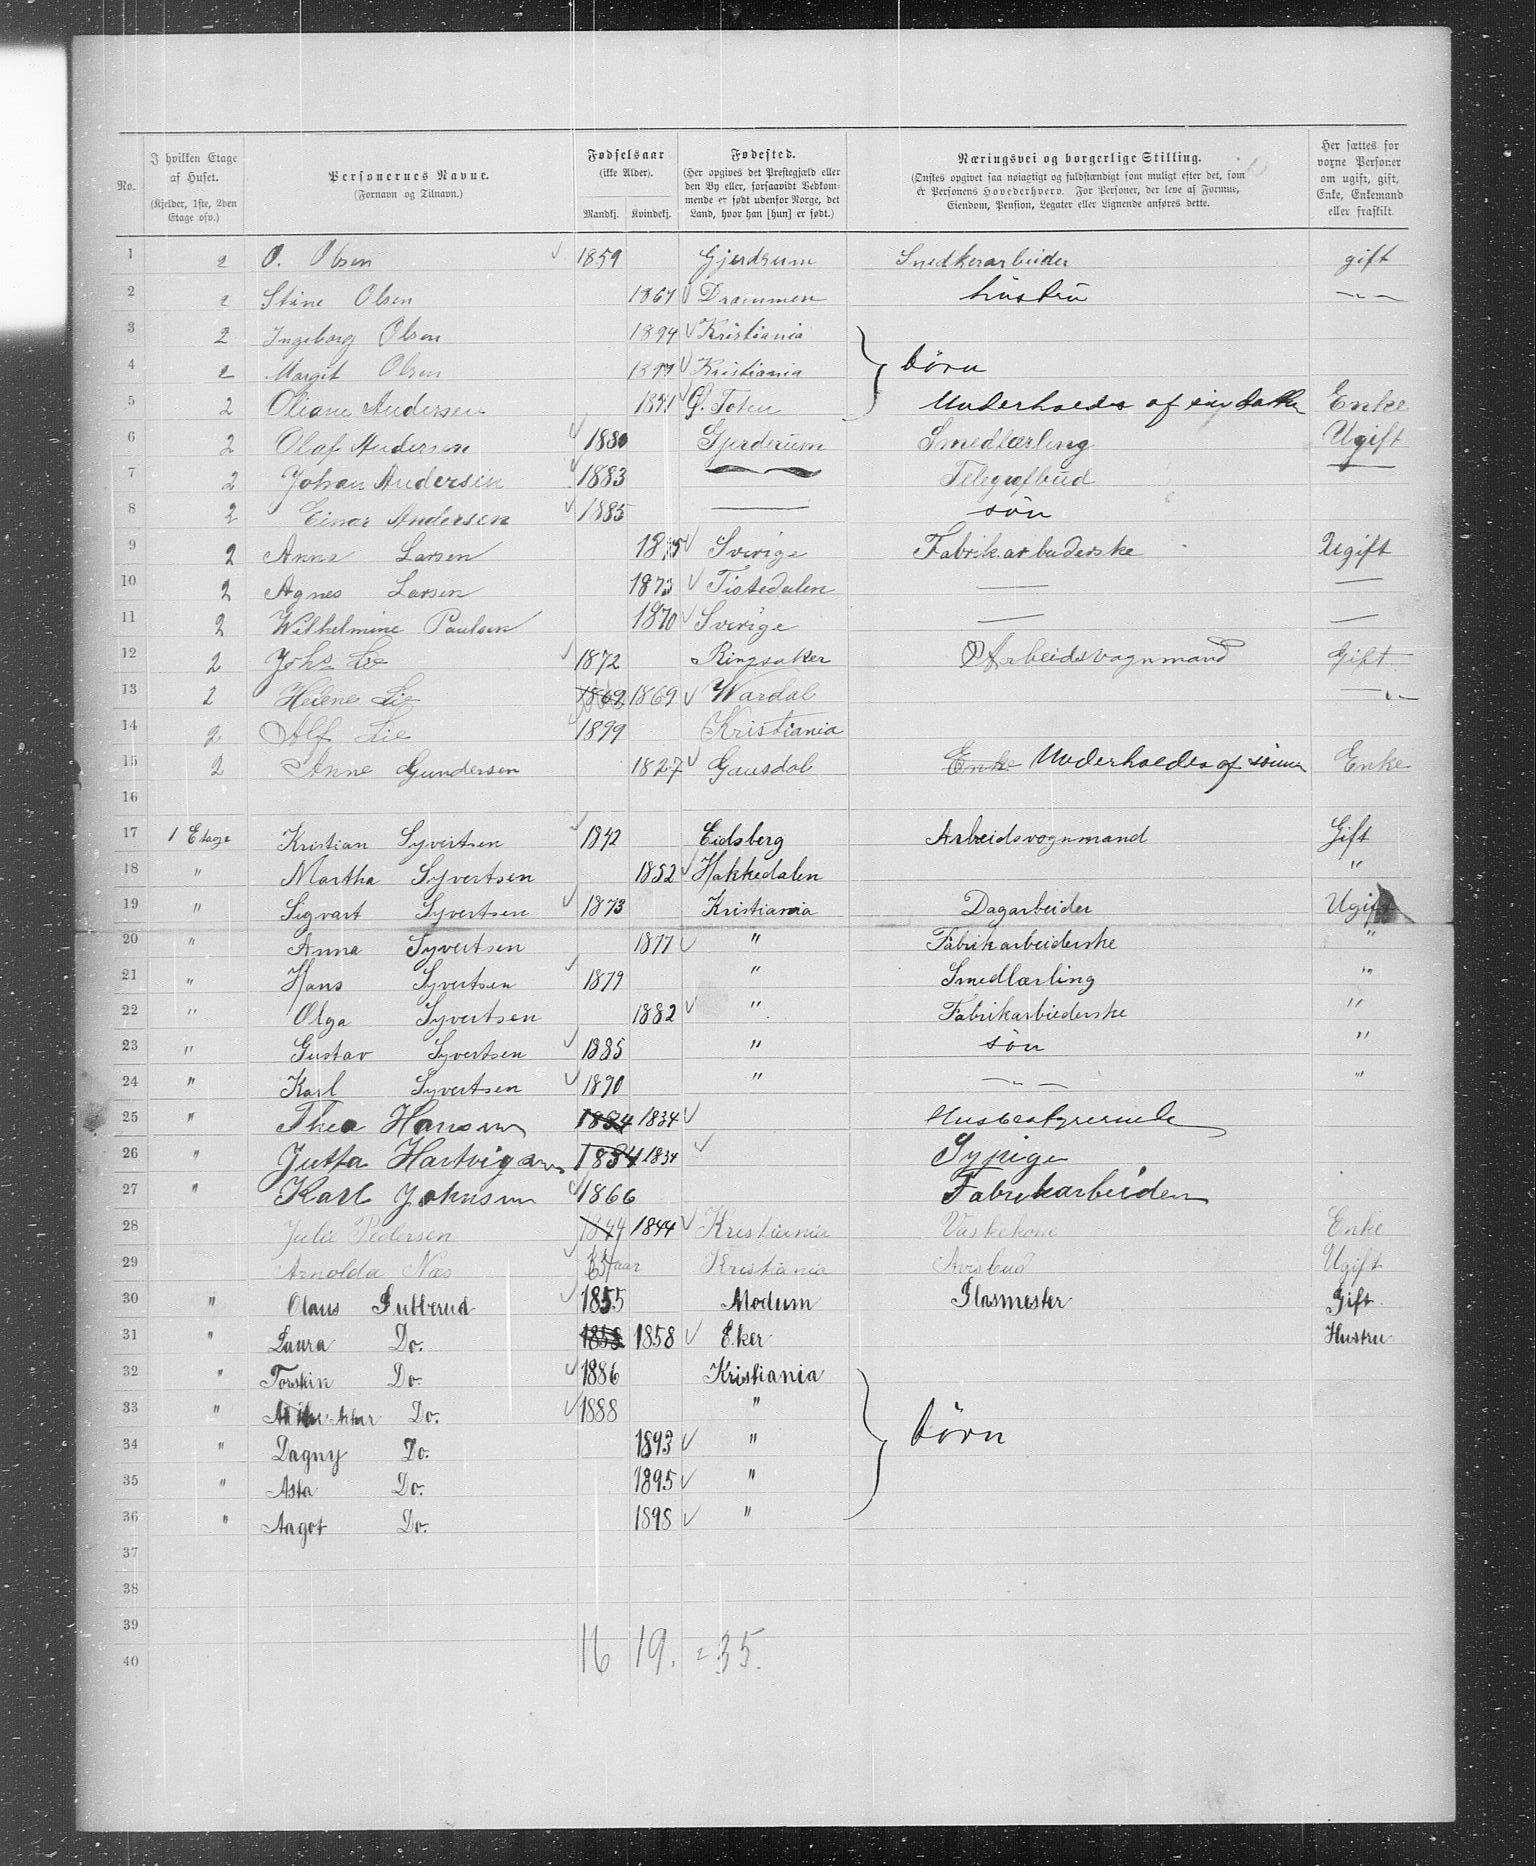 No.
I hvilken Etage af Huset.
(Kjelder, 1ste, 2den Etage osv.)
Personernes Navne.
(Fornavn og Tilnavn).
Fødselsaar
(ikke Alder).
Mandkj. Kvindekj.
Fødested.
(Her opgives det Prestegjæld eller den By eller, forsaavidt Vedkommende er født udenfor Norge, det Land, hvor han [hun] er født.)
Næringsvei og borgerlige Stilling.
(Ønskes opgivet saa nøiagtigt og fuldstændigt som muligt efter det, som er Personens Hovederhverv. For Personer, der leve af Formue, Eiendom, Pension, Legater eller Lignende anføres dette.
Her sættes for voxne Personer om ugift, gift, Enke, Enkemand eller fraskilt.
1 2 O. Olsen 1859 Gjerdrum Snedkerarbeider gift
2 2 Stine Olsen 1867 Drammen hustru — „ —
3 2 Ingeborg Olsen 1894 Kristiania
4 2 Margit Olsen 1897 Kristiania børn
5 2 Oliane Andersen Ø. Toten Underholdes af Enke
6 2 Olaf Andersen 1880 Gjerderum Smedlærling Ugift
7 2 Johan Andersen 1883 — Telegrafbud —
8 2 Einar Andersen 1885 — søn
9 2 Anna Larsen 1875 Sverige Fabrikarbeiderske Ugift
10 2 Agnes Larsen 1873 Tistedalen — —
11 2 Wilhelmine Paulsen 1870 Sverige — —
12 2 Johs Lie 1872 Ringsaker Arbeidsvognmand Gift
13 2 Helene Lie 1869 1869 Wardal — „ —
14 2 Alf Lie 1899 Kristiania
15 2 Anne Gundersen 1827 Gausdal Enke Underholdes af sønner Enke
16
17 1 Etage Kristian Syvertsen 1842 Eidsberg Arbeidsvognmand Gift
18 " Martha Syvertsen 1852 Hakkedalen "
19 " Sigvart Syvertsen 1873 Kristiania Dagarbeider Ugift
20 " Anna Syvertsen 1877 " Fabrikarbeiderske "
21 " Hans Syvertsen 1879 " Smedlærling "
22 " Olga Syvertsen 1882 " Fabrikarbiederske "
23 " Gustav Syvertsen 1885 " søn "
24 " Karl Syvertsen 1890 " — „ — "
25 " Thea Hansen 1834 1834 Husbestyrerinde
26 " Jutta Hartvigsen 1834 1834 Sypige
27 " Karl Johnsen 1866 Fabrikarbeider
28 Julie Pedersen 1844 1844 Kristiania Vaskekone Enke
29 Arnolda Næs aar Kristiania Avisbud Ugift
30 " Olaus Gulterud 1855 Modum Glasmester Gift.
31 " Laura Do. 1858 1858 Eker Hustru
32 " Torstein Do. 1886 Kristiania
33 " Do. 1888 "
34 " Dagny Do. 1893 " børn
35 " Asta Do. 1895 "
36 " Aagot Do. 1898 "
37
38
39
40 16 19. = 35.